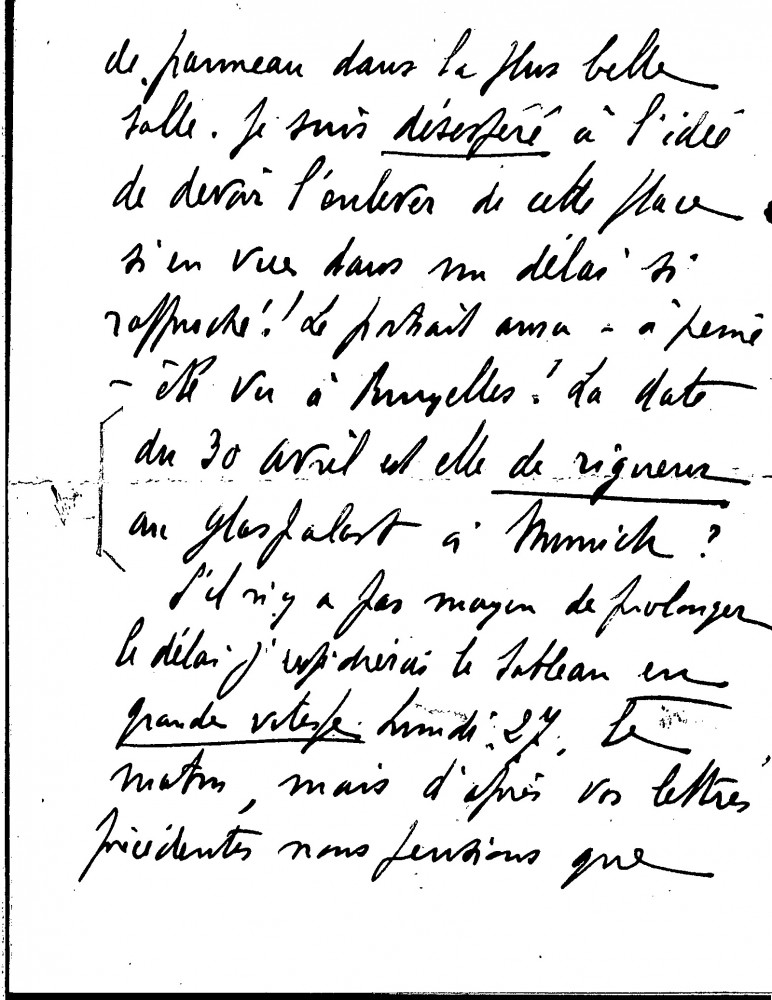 de panneau dans la plus belle
salle. Je suis désespéré à l'idée
de devoir l'enlever de cette place
si en vue dans un délai si
rapproché!! Le portrait aura - à peine
- été vu à Bruxelles! La date
du 30 avril est elle de rigueur
au Glaspalast à Munich ?
S'il n'y a pas moyen de prolonger
le délai j'expédierais le tableau en
grande vitesse lundi 27, le
matin, mais d'après vos lettres
précédentes nous pensions que